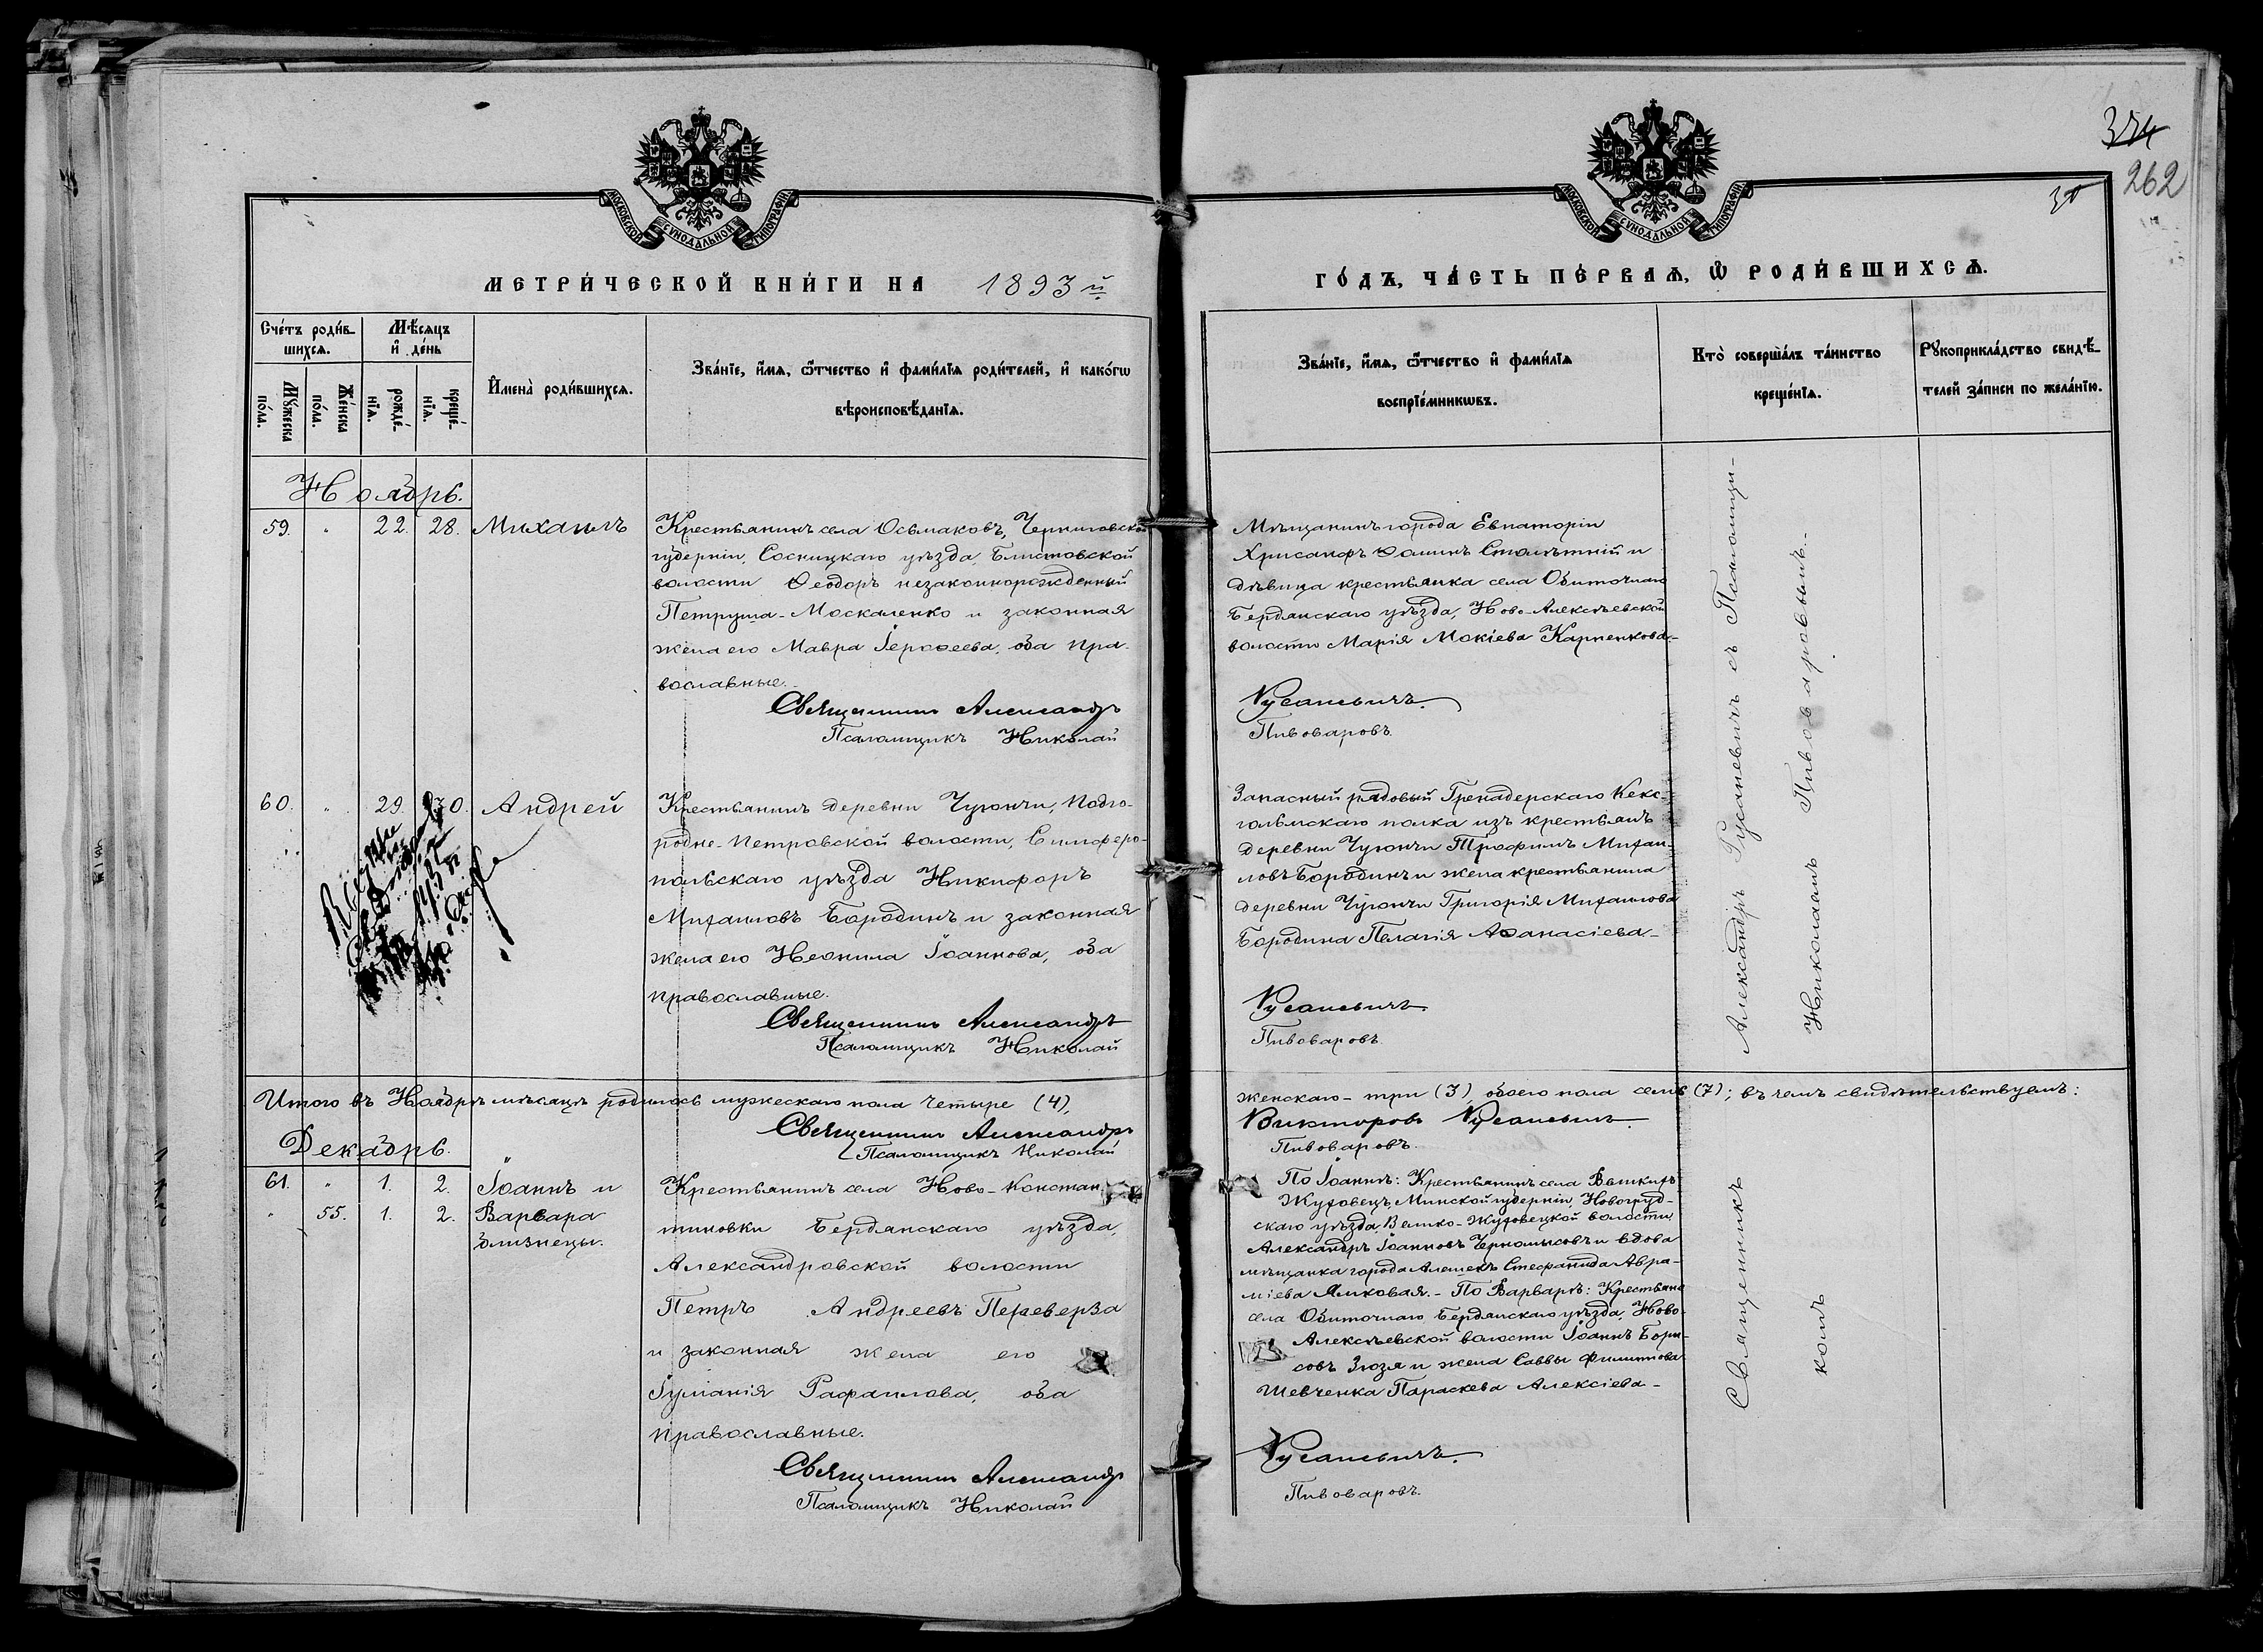 374
262
МОСКОВСКОЙ СУНОДАЛЬНОЙ ТИПОГРАФІИ
МОСКОВСКОЙ СУНОДАЛЬНОЙ ТИПОГРАФІИ
МЕТРИ́ЧЕСКОЙ КНИ́ГИ НА 1893 й
ГО́ДЪ, ЧА́СТЬ ПЕ́РВАЯ, Ѡ РОДИ́ВШИХСЯ.
Сче́тъ роди́в-
шихся.
Мѣ́сяцъ
и де́нь
Мꙋжеска
по́ла.
Же́нска
по́ла.
рожде́-
нїя.
креще́-
нїя.
Имена̀ роди́вшихся.
Зва́нїе, и́мя, ѻ҆́тчество и фами́лїя роди́телей, и како́гѡ
вѣроисповѣ́данїя.
Зва́нїе, и́мя, ѻ҆́тчество и фами́лїя
воспрїе́мникѡвъ.
Кто̀ соверша́лъ та́инство
креще́нїя.
Рꙋкоприкла́дство свидѣ́-
телей за́писи по жела́нїю.
Ноябрь.
59. " 22. 28. Михаилъ
Крестьянинъ села Осьмаковъ, Черниговской
губерніи, Сосницкаго уѣзда, Блистовской
волости Ѳеодоръ незаконнорожденный
Петруша-Москаленко и законная
жена его Мавра Іероѳеева, оба пра-
вославные.
Священникъ Александръ
Псаломщикъ Николай
Мѣщанинъ города Евпаторіи
Хрисанфъ Ѳоминъ Столѣтній и
дѣвица крестьянка села Обиточнаго
Бердянскаго уѣзда, Ново-Алексѣевской
волости Марія Мокіева Карпенкова-
Русаневичъ.
Пивоваровъ
60. " 29. 30. Андрей
Крестьянинъ деревни Чуюнчи, Подго-
родне-Петровской волости, Симферо-
польскаго уѣзда Никифоръ
Михаиловъ Бородинъ и законная
жена его Неонила Іоаннова, оба
православные.
Священникъ Александръ
Псаломщикъ Николай
Запасный рядовый Гренадерскаго Кекс-
гольмскаго полка изъ крестьянъ
деревни Чуюнчи Трофимъ Михаи-
ловъ Бородинъ и жена крестьянина
деревни Чуюнчи Григорія Михаилова
Бородина Пелагія Аѳанасіева-
Русаневичъ.
Пивоваровъ.
Александръ Русаневичъ съ Псаломщи-
Николаемъ Пивоваровымъ.-
Итого въ Ноябрѣ мѣсяцѣ родилось мужескаго пола четыре (4),
женскаго - три (3), обоего пола семь (7); въ чемъ свидѣтельствуемъ:
Священникъ Александръ
Викторовъ Русаневичъ.
Псаломщикъ Николай
Пивоваровъ.
Декабрь.
61. " 1. 2. Іоаннъ и
" 55. 1. 2. Варвара
близнецы.
Крестьянинъ села Ново-Констан
тиновки Бердянскаго уѣзда,
Александровской волости
Петръ Андреевъ Переверза
и законная жена его
Іуліанія Рафаилова, оба
православные.
Священникъ Александръ
Псаломщикъ Николай
По Іоаннѣ: Крестьянинъ села Великихъ
Жуховецъ, Минской губерніи, Новогруд-
скаго уѣзда, Велико-Жуховецкой волости,
Александръ Іоанновъ Черномысовъ и вдова
мѣщанка города Алешекъ Стефанида Авра-
міева Ямковая.- По Варварѣ: Крестьяне
села Обиточнаго Бердянскаго уѣзда, Ново-
Алексѣевской волости Іоаннъ Бори-
совъ Зюзя и жена Саввы Филиппова
Шевченка Параскева Алексіева-
Русаневичъ.
Пивоваровъ.
Священникъ
комъ